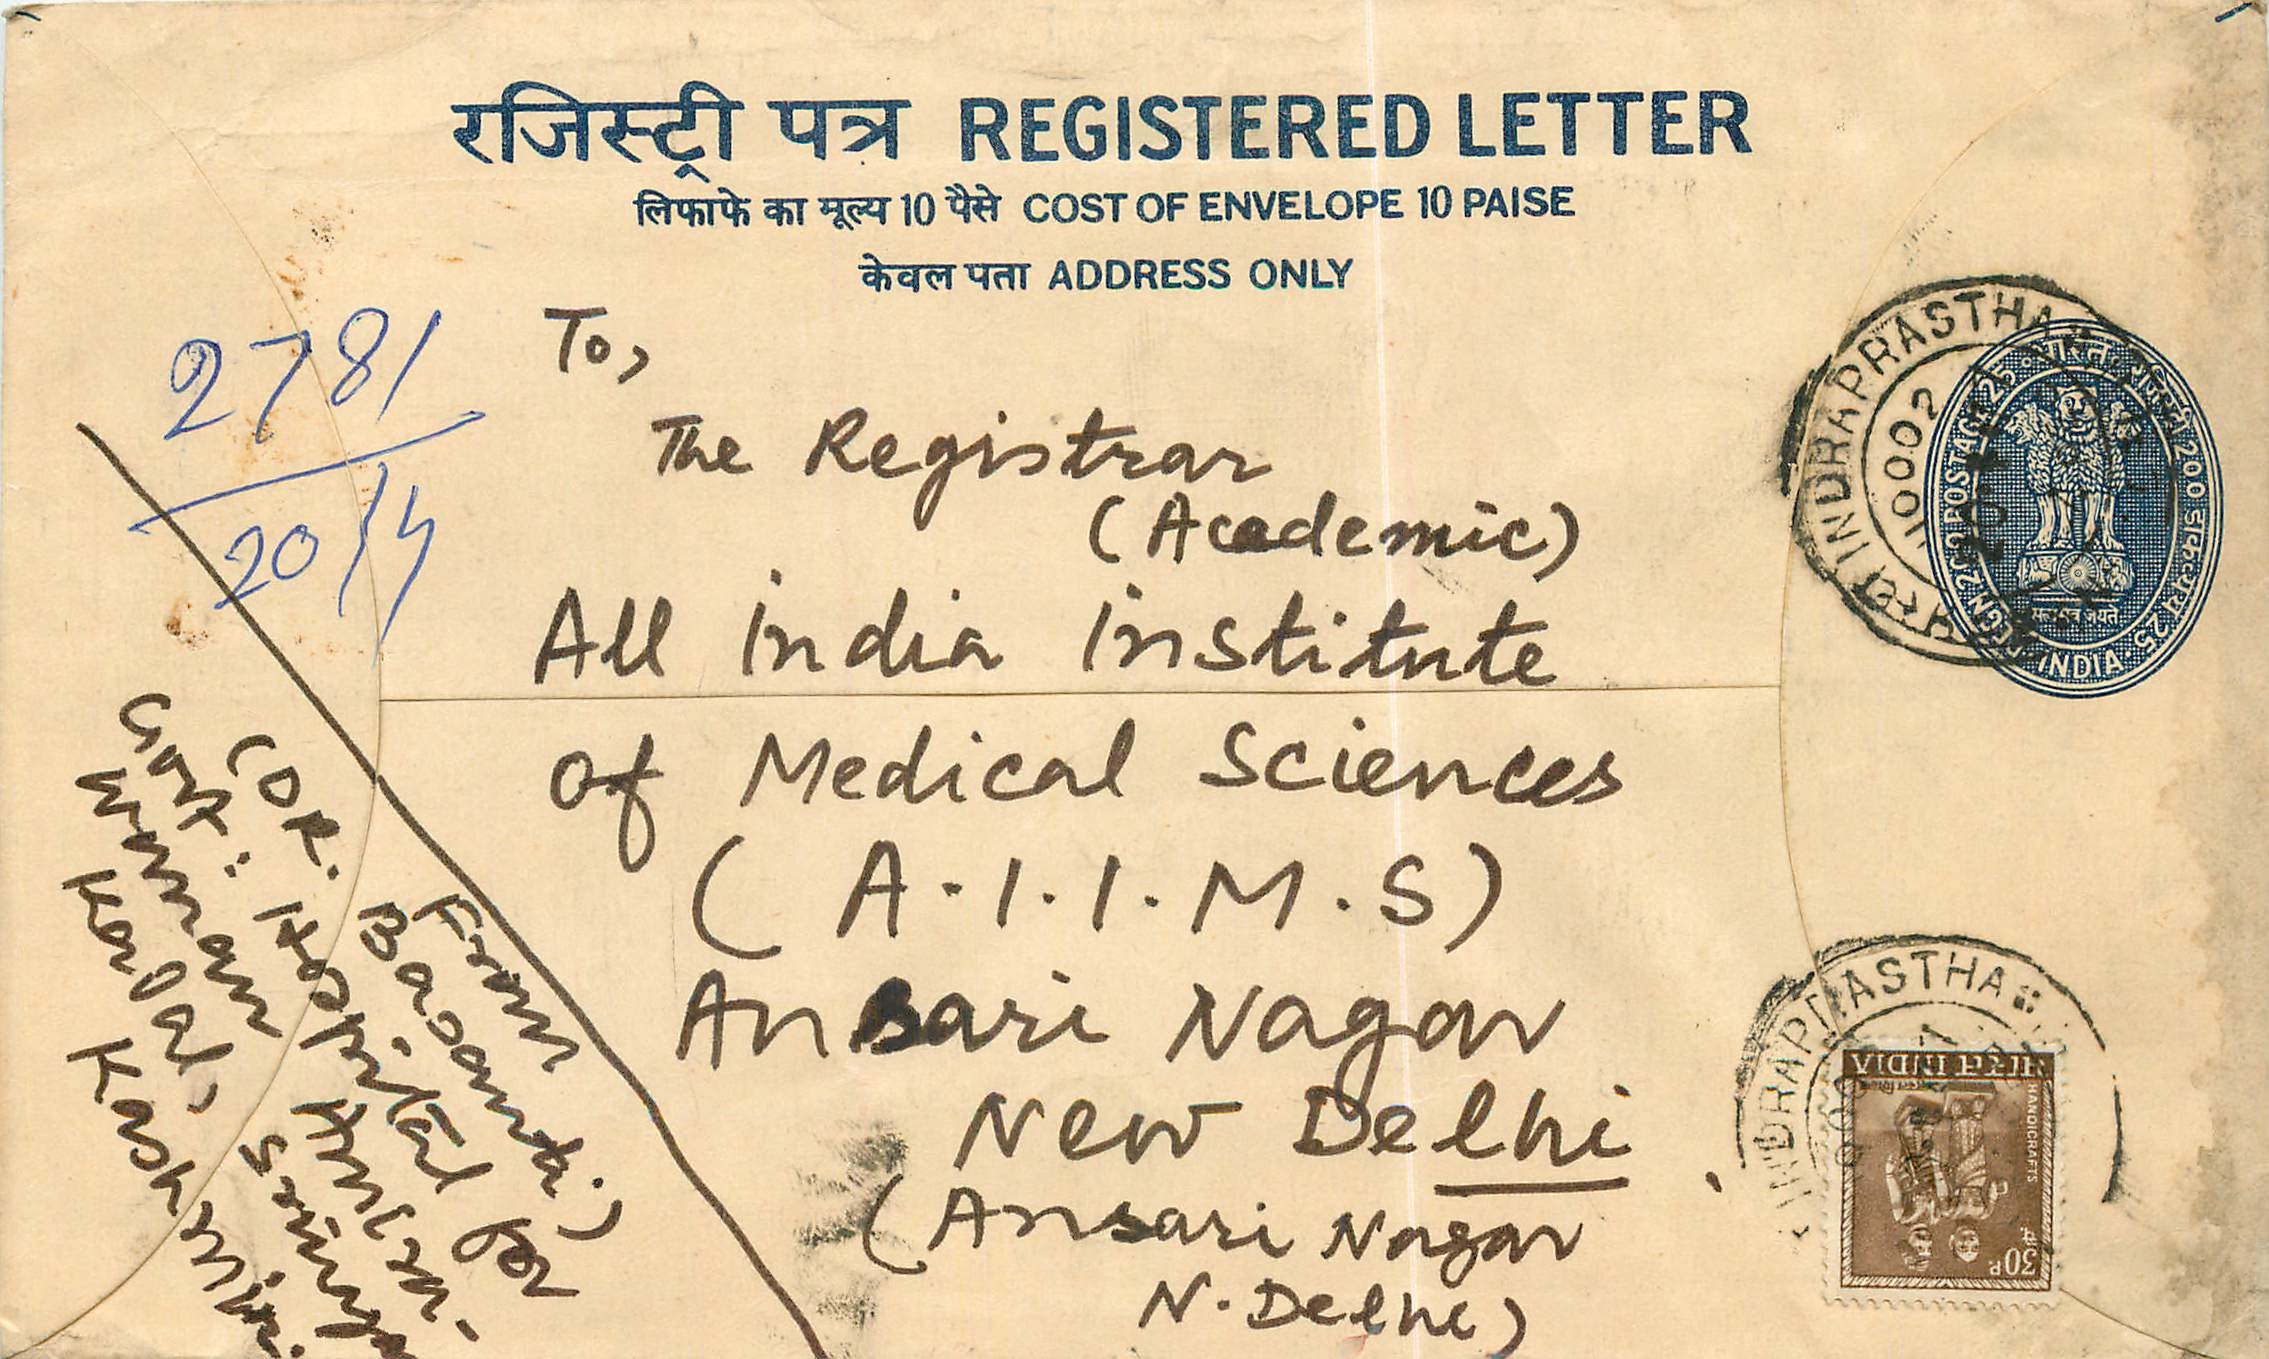 रजिस्ट्री पत्र REGISTERED LETTER
लिफाफे का मूल्य 10 पैसे COST OF ENVELOPE 10 PAISE
केवल पता ADDRESS ONLY
2781
20/4
To,
The Registrar
(Academic)
All India Institute
of Medical Sciences
(A.I.I.M.S)
Ansari Nagar
New Delhi
(Ansari Nagar
N. Delhi)
From
Basanti)
(DR.
Govt:
INDRAPRASTHA
110002
भारत
REGN 200 POSTAGE 25
INDIA
INDRAPRASTHA
भारत INDIA
HANDICRAFTS
30P